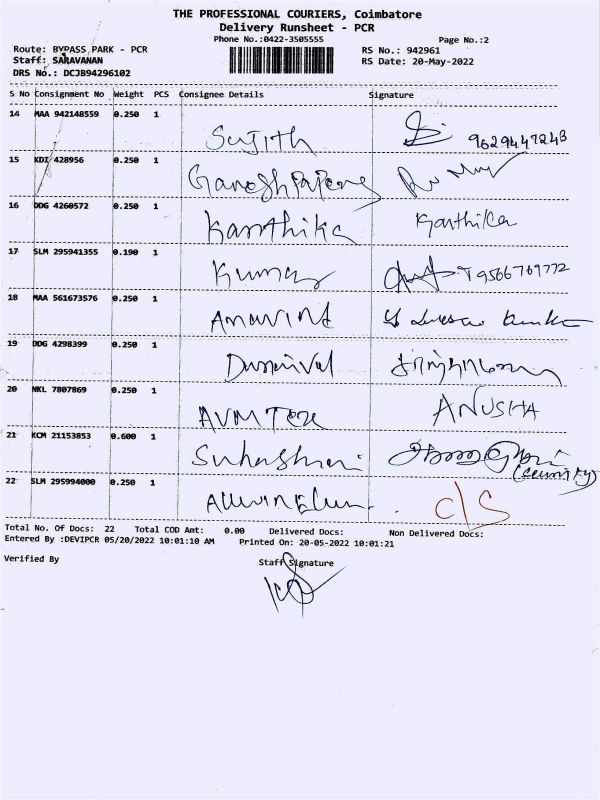 THE PROFESSIONAL COURIERS, Coimbatore
Delivery Runsheet - PCR
Phone No.:0422-3505555
Page No.:2
Route: BYPASS PARK - PCR
RS No.: 942961
Staff: SARAVANAN
RS Date: 20-May-2022
DRS No.: DCJB94296102
S No Consignment No Weight PCS Consignee Details Signature
14 MAA 942148559 0.250 1
Sujith 9629447243
15 KDI 428956 0.250 1
16 DDG 4260572 0.250 1
Karthika Karthika
17 SLM 295941355 0.190 1
Kumar 9566769772
18 MAA 561673576 0.250 1
19 DDG 4298399 0.250 1
20 NKL 7807869 0.250 1
AVM Tex ANUSHA
21 KCM 21153853 0.600 1
(Security)
22 SLM 295994000 0.250 1
C/S
Total No. Of Docs: 22 Total COD Amt: 0.00 Delivered Docs: Non Delivered Docs:
Entered By :DEVIPCR 05/20/2022 10:01:10 AM Printed On: 20-05-2022 10:01:21
Verified By Staff Signature